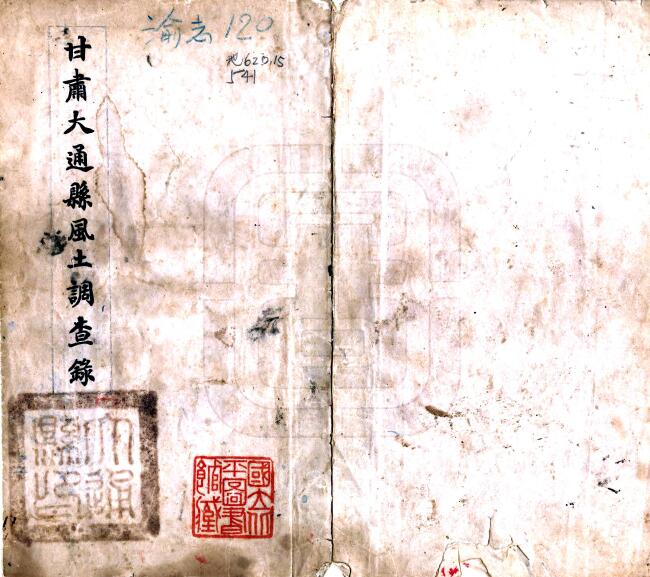 甘肅大通縣風土調查錄
渝志120
地620.15
541
大通
縣印
國立北
平圖書
館藏